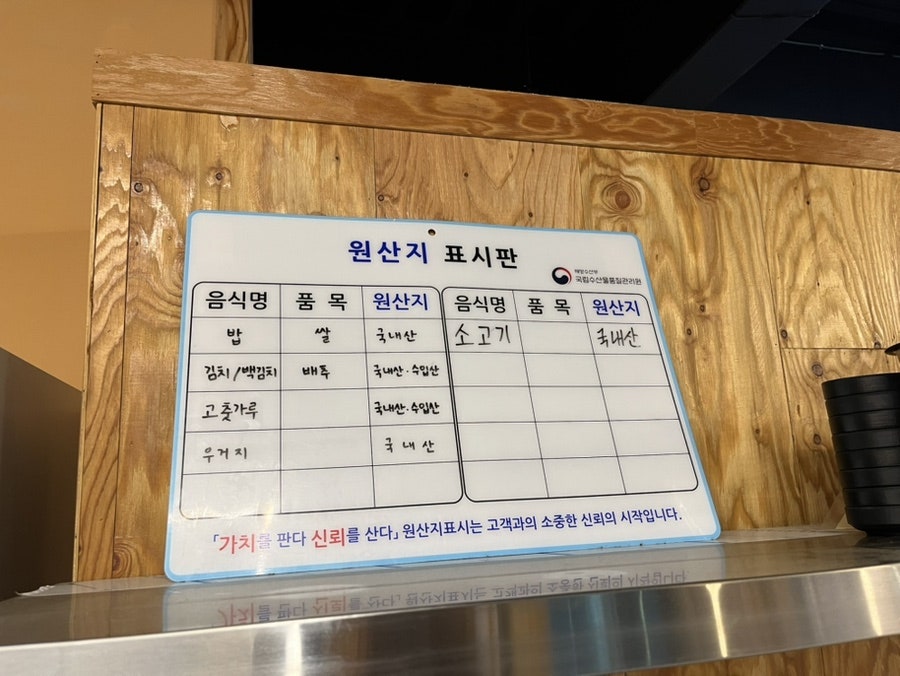 원산지 표시판
해양수산부
국립수산물품질관리원
음식명 품 목 원산지 음식명 품 목 원산지
밥 쌀 국내산 소고기 국내산
김치/백김치 배추 국내산·수입산
고춧가루 국내산·수입산
우거지 국내산
「가치를 판다 신뢰를 산다」 원산지표시는 고객과의 소중한 신뢰의 시작입니다.